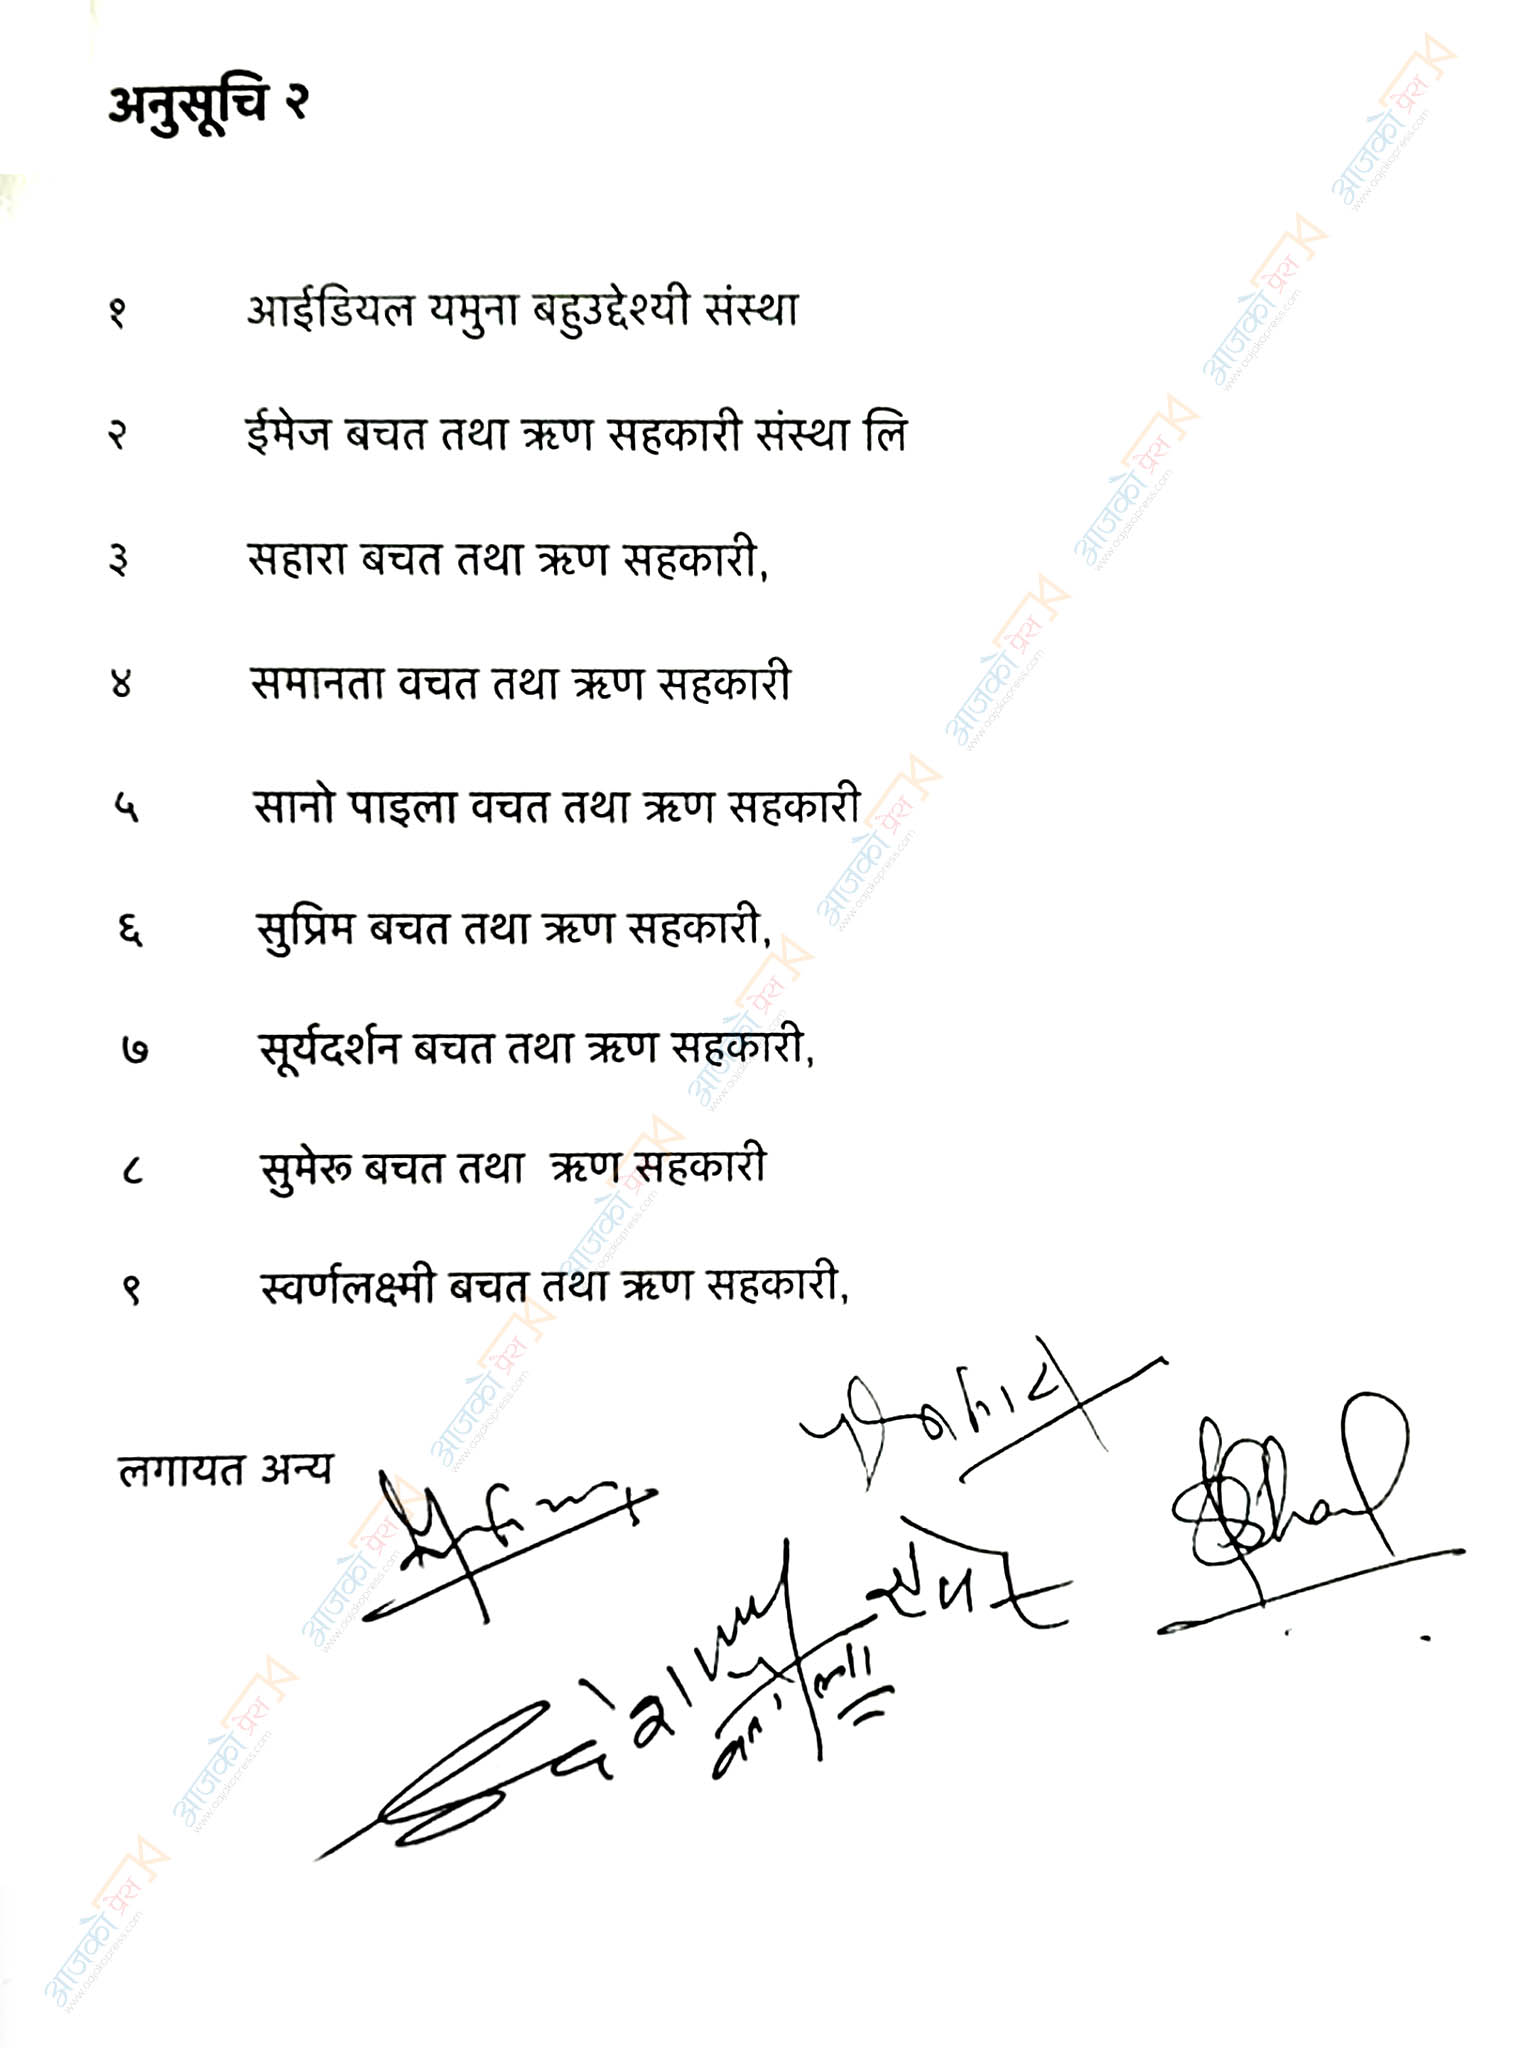 अनुसूचि २
१ आईडियल यमुना बहुउद्देश्यी संस्था
२ ईमेज बचत तथा ऋण सहकारी संस्था लि
३ सहारा बचत तथा ऋण सहकारी,
४ समानता वचत तथा ऋण सहकारी
५ सानो पाइला वचत तथा ऋण सहकारी
६ सुप्रिम बचत तथा ऋण सहकारी,
७ सूर्यदर्शन बचत तथा ऋण सहकारी,
८ सुमेरू बचत तथा ऋण सहकारी
९ स्वर्णलक्ष्मी बचत तथा ऋण सहकारी,
लगायत अन्य
आजको प्रेस
www.aajakopress.com